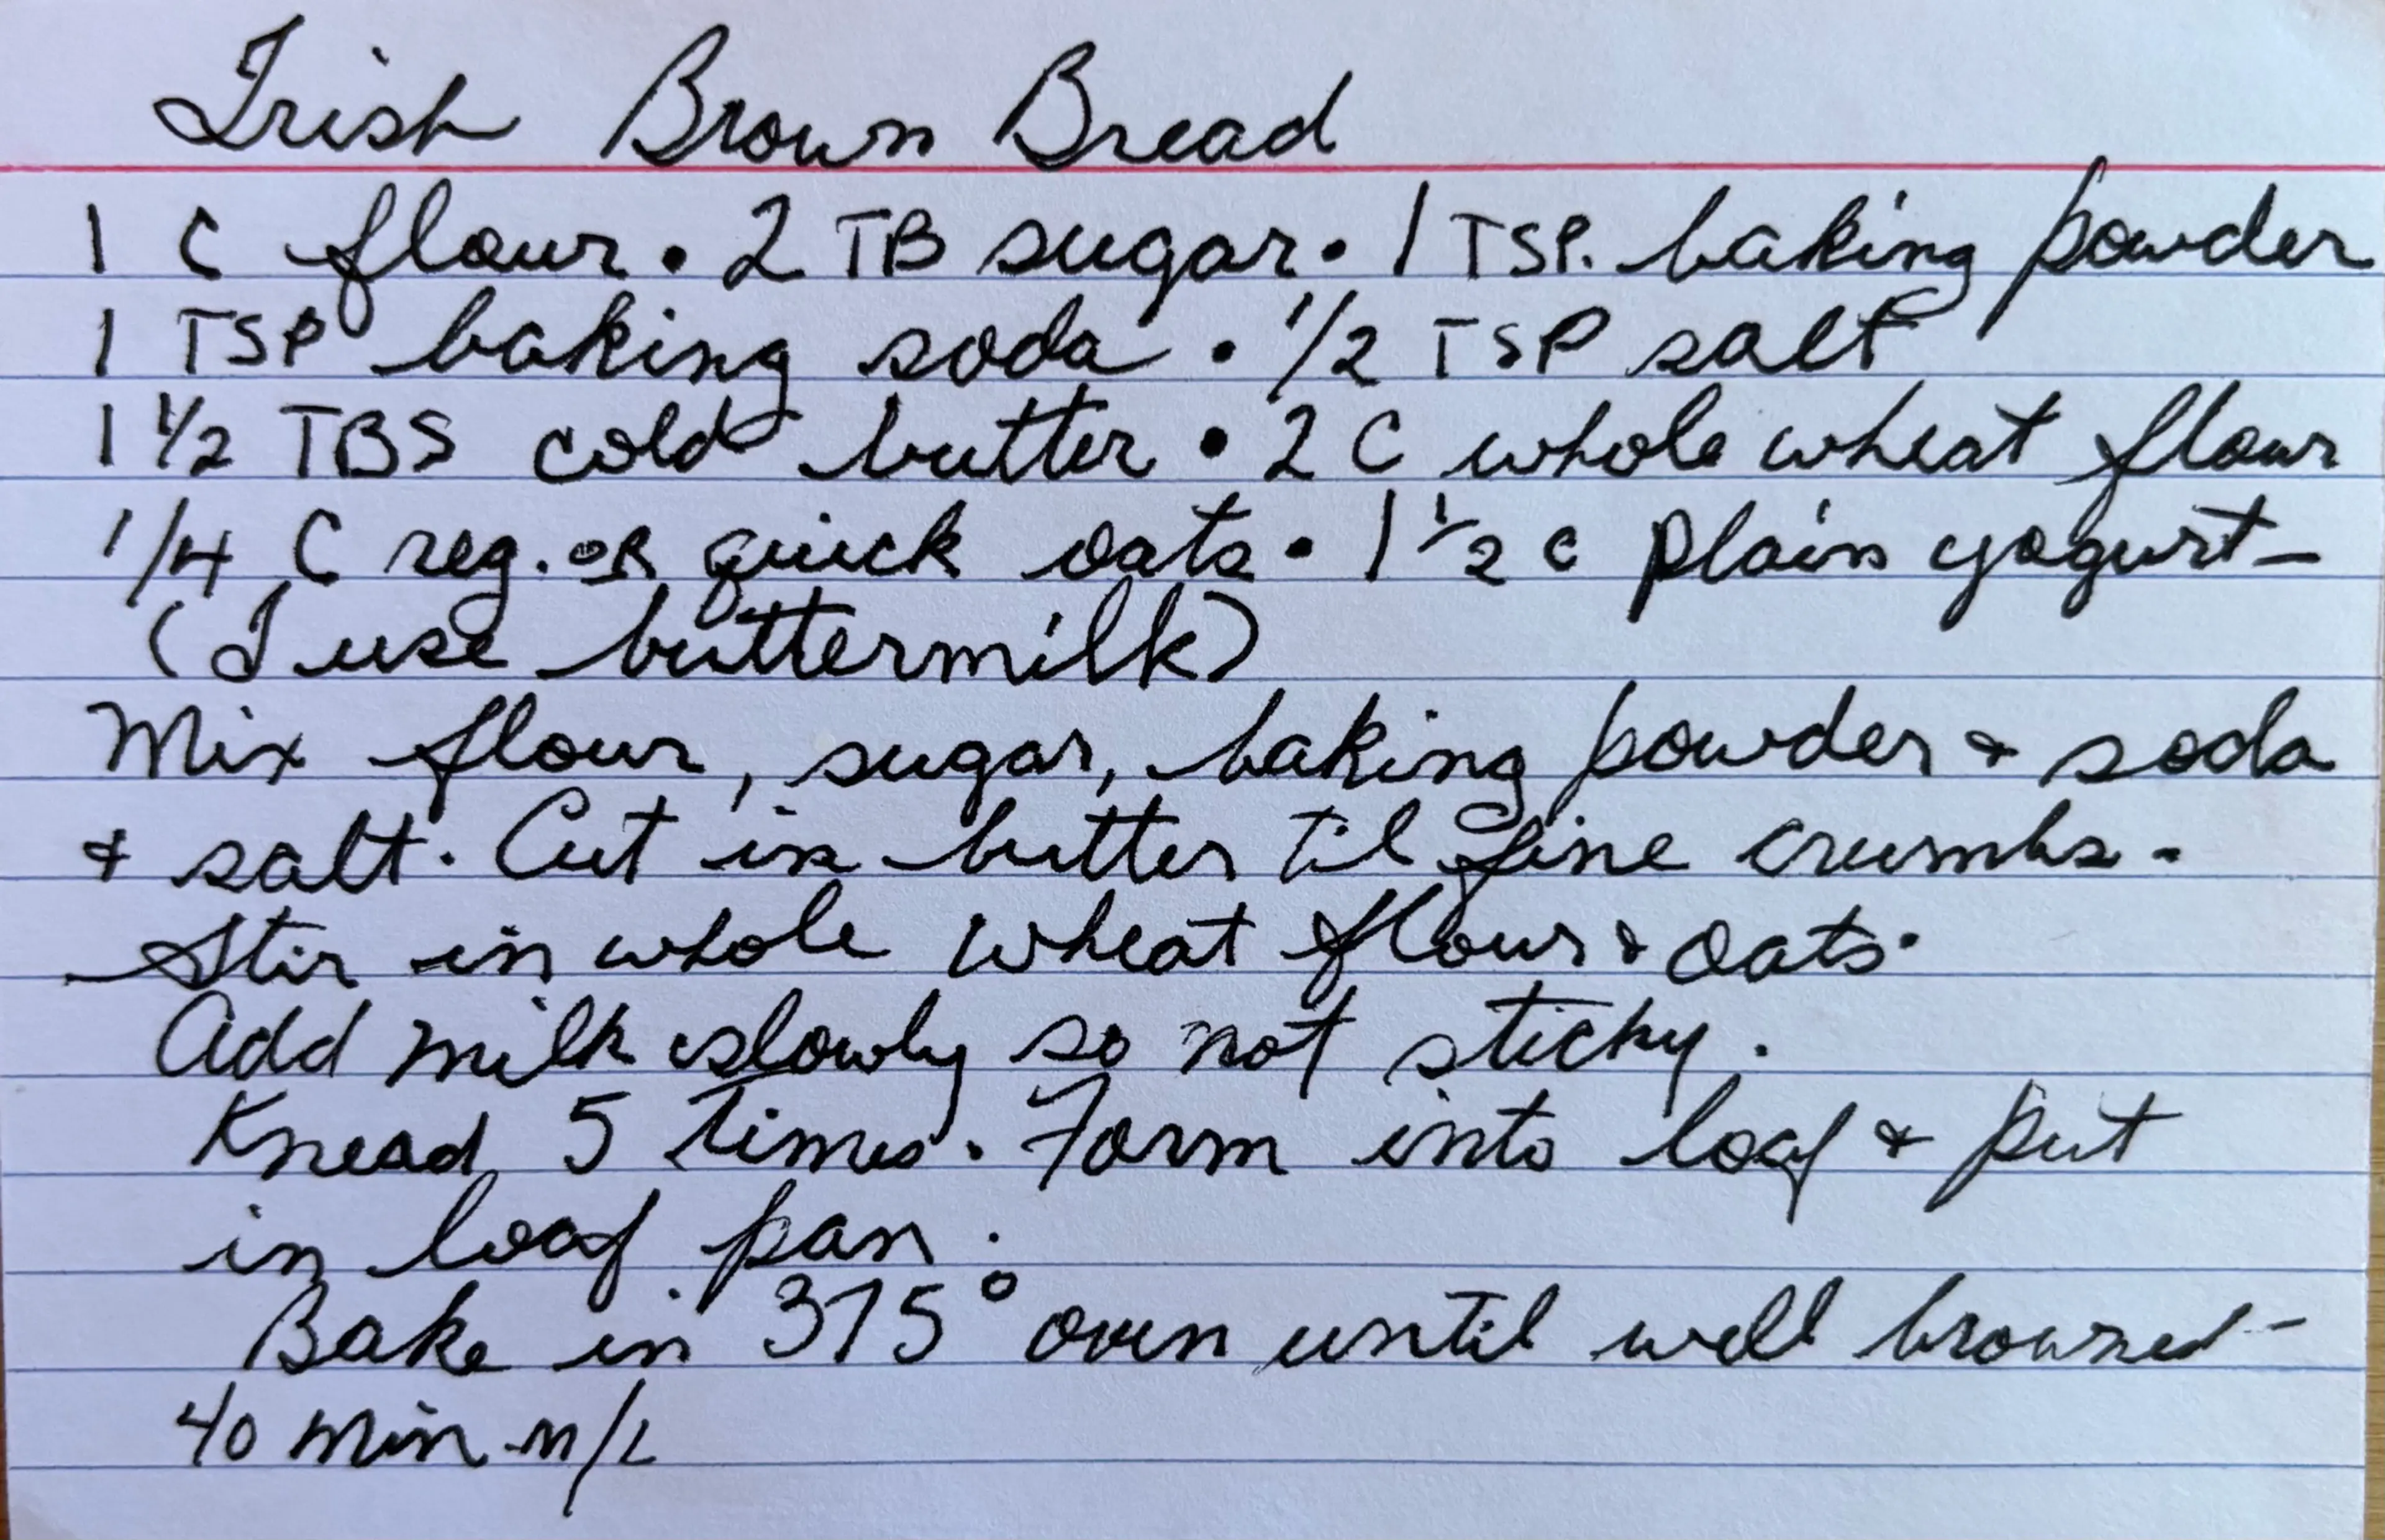 Irish Brown Bread
1 C flour • 2 TB sugar • 1 TSP. baking powder
1 TSP baking soda • 1/2 TSP salt
1 1/2 TBS cold butter • 2 C whole wheat flour
1/4 C reg. OR quick oats • 1 1/2 c plain yogurt -
(I use buttermilk)
Mix flour, sugar, baking powder & soda
& salt. Cut in butter til fine crumbs.
Stir in whole wheat flour & oats.
Add milk slowly so not sticky.
Knead 5 times. Form into loaf & put
in loaf pan.
Bake in 375° oven until well browned -
40 min m/l